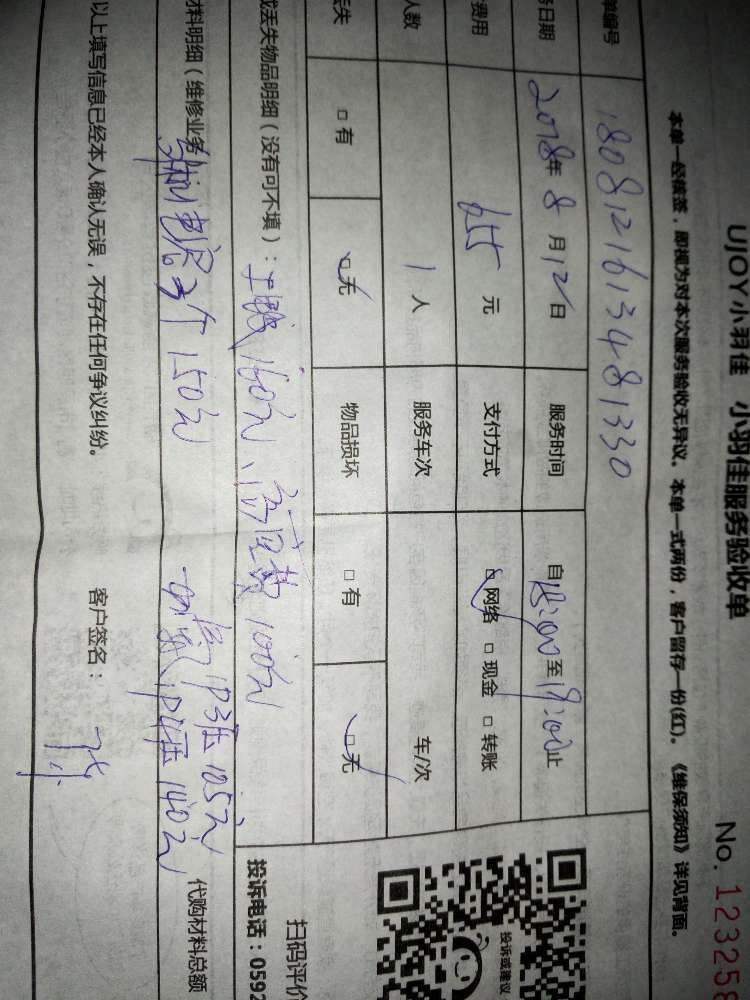 UJOY小羽佳 小羽佳服务验收单
No. 123258
本单一经核签，即视为对本次服务验收无异议。本单一式两份，客户留存一份(红)。《维保须知》详见背面。
单编号 1808121613481330
务日期 2018年8月12日 服务时间 自18:00至19:00止
费用 655元 支付方式 ☑网络 □现金 □转账
人数 1人 服务车次 车/次
丢失 □有 ☑无 物品损坏 □有 ☑无
或丢失物品明细（没有可不填）： 160元、高空费100元
材料明细（维修业务 3个150元 1P3匹105元
1P4匹140元
代购材料总额
以上填写信息已经本人确认无误，不存在任何争议纠纷。 客户签名：
投诉或建议
扫码评价
投诉电话：0592